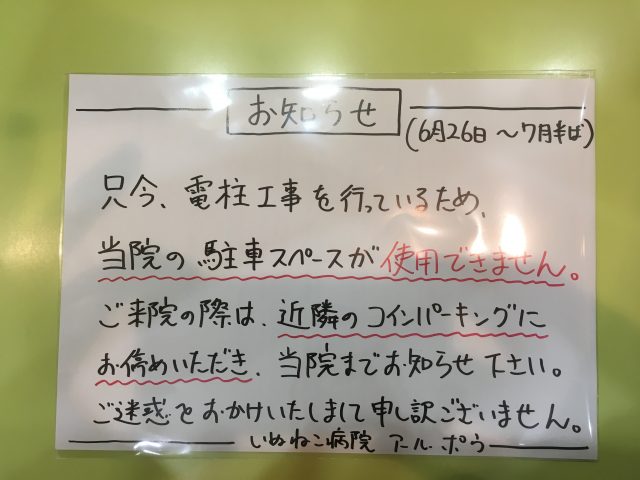 お知らせ
(6月26日 〜7月半ば)
只今、電柱工事を行っているため、
当院の駐車スペースが使用できません。
ご来院の際は、近隣のコインパーキングに
お停めいただき、当院までお知らせ下さい。
ご迷惑をおかけいたしまして申し訳ございません。
いぬねこ病院 アール ポウ